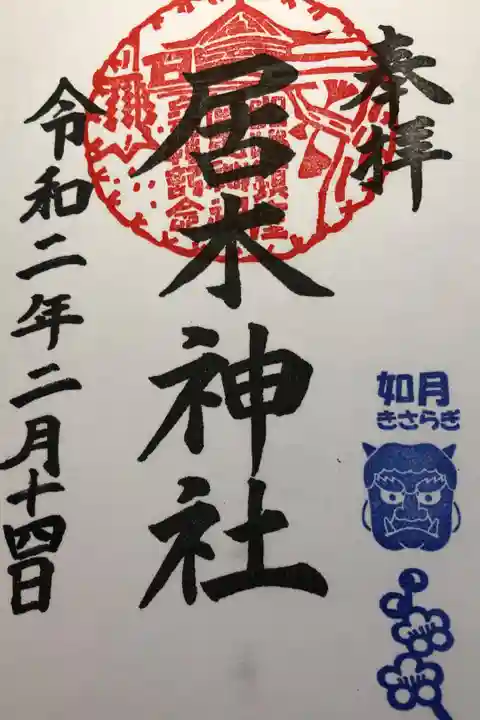 奉拝
如月
きさらぎ
居木神社
令和二年二月十四日